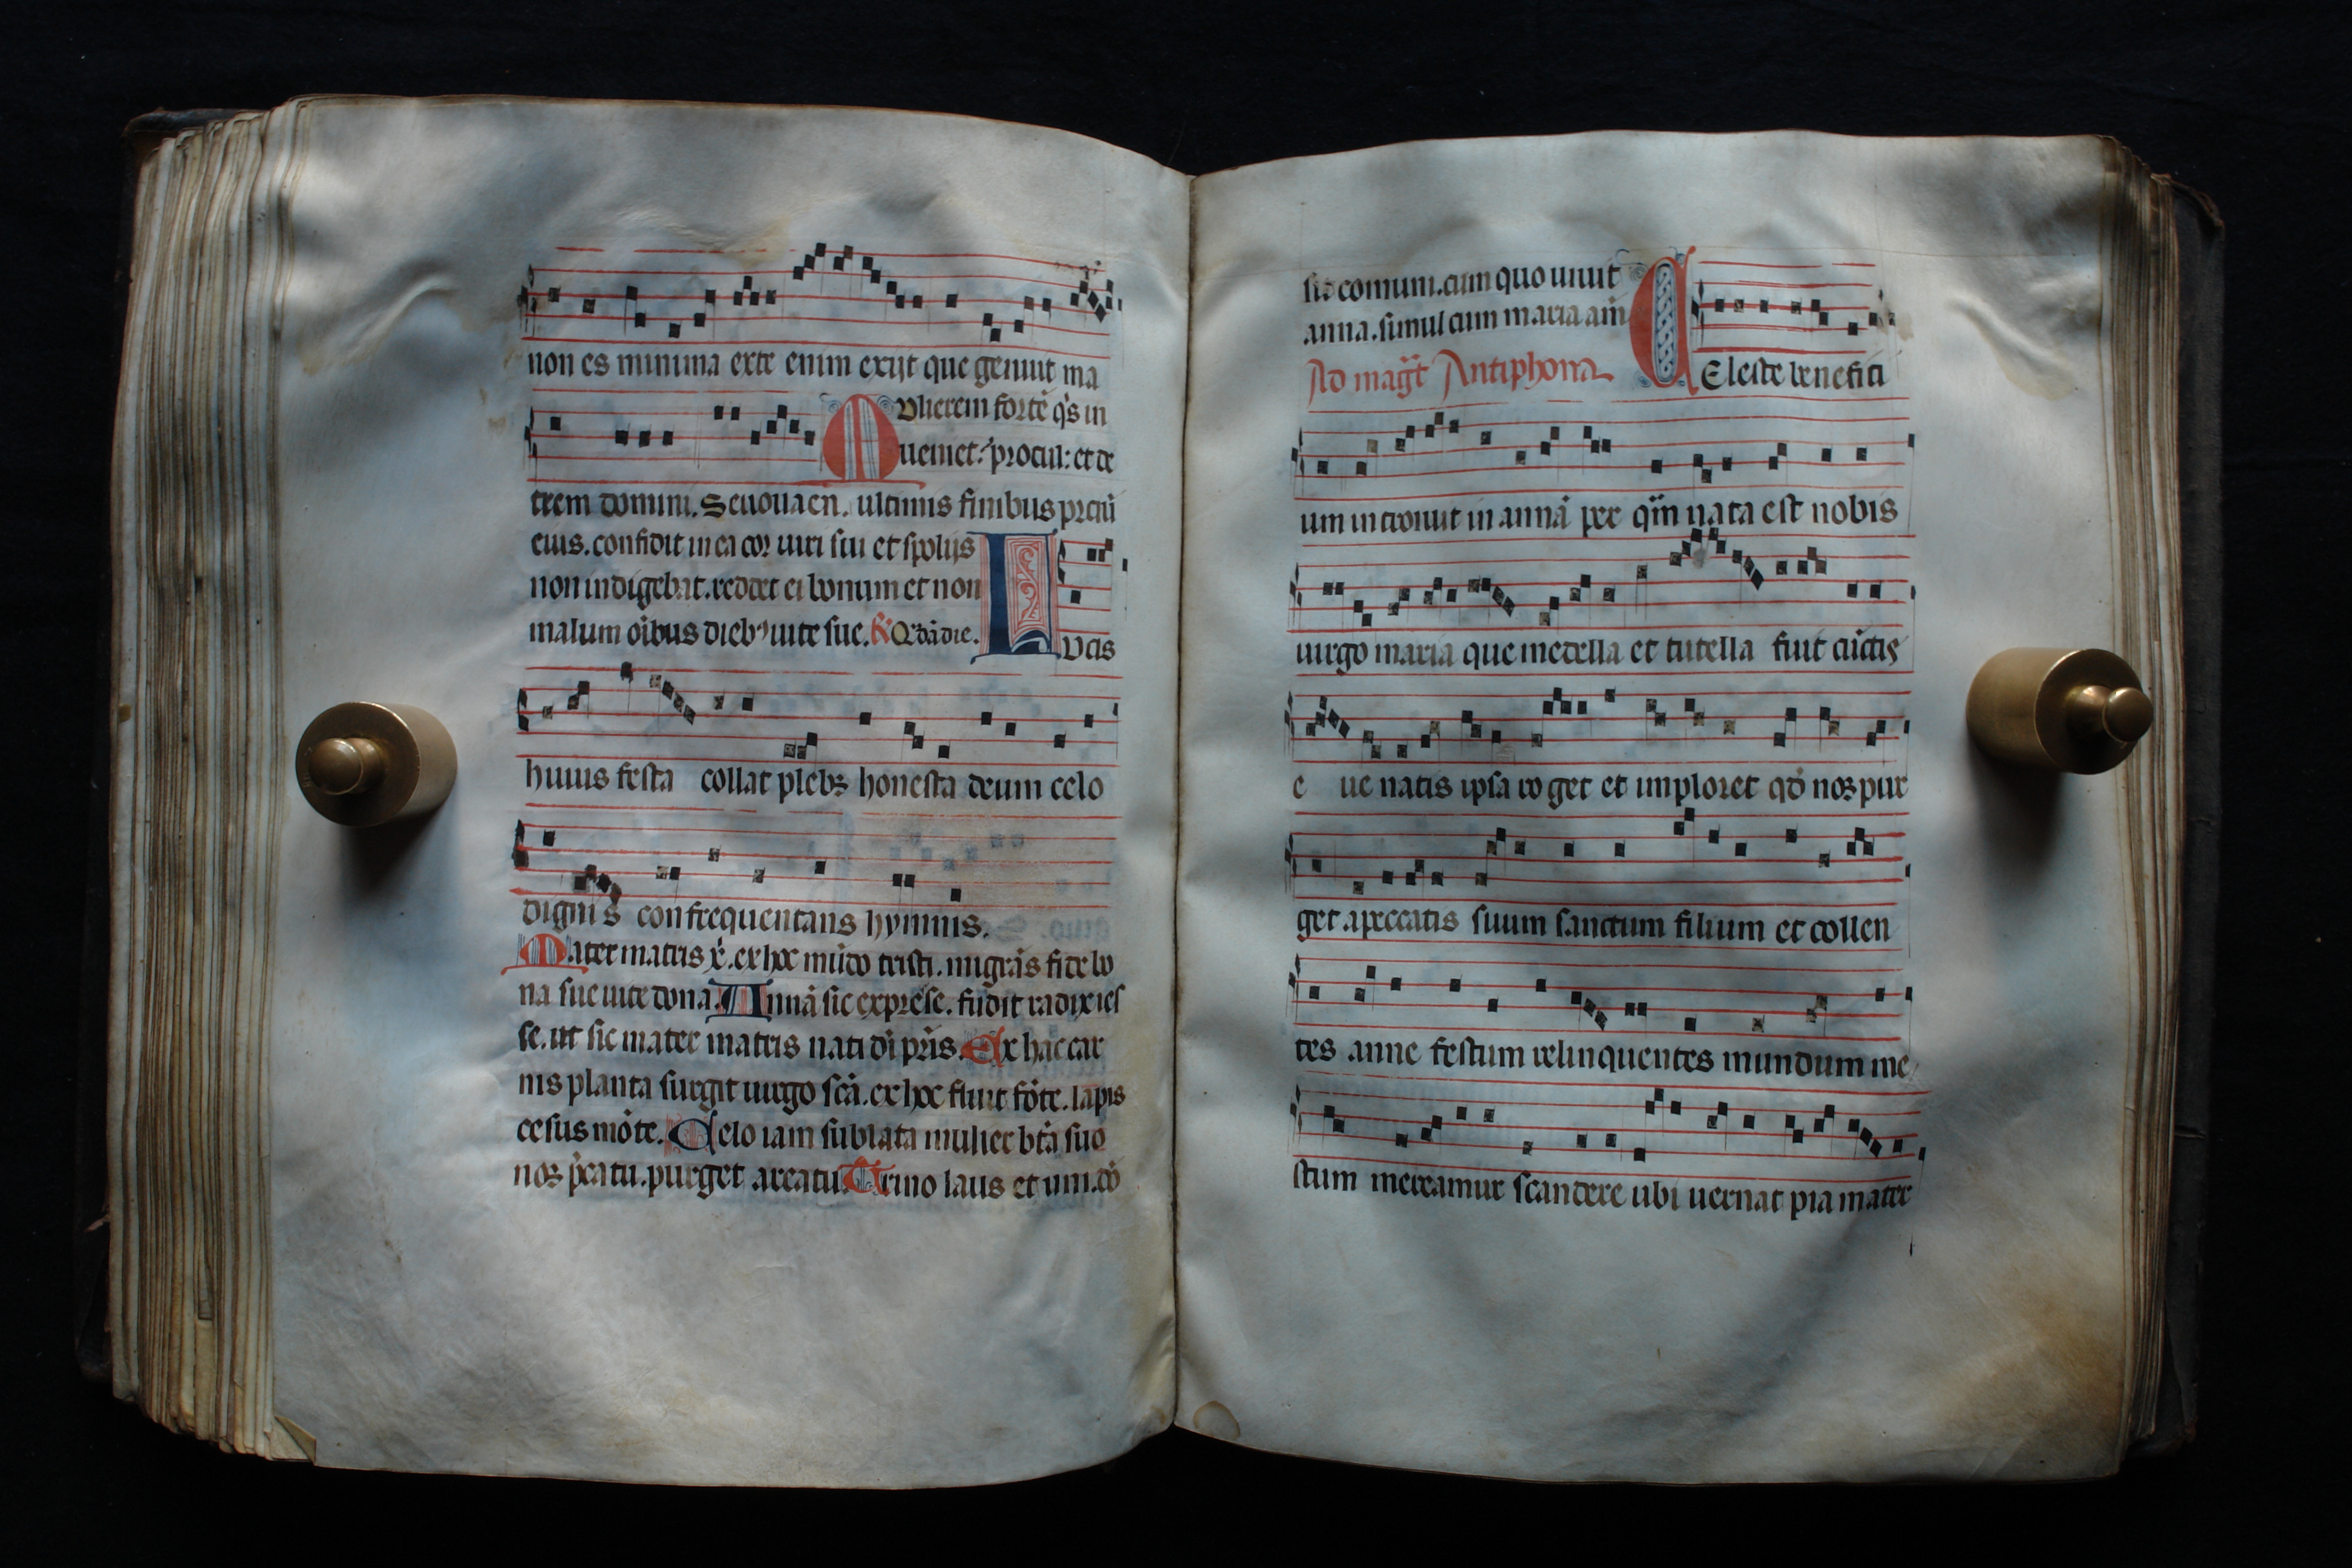 non es minima exte enim exijt que genuit ma
Vlierem fortē q̄s in
ueniet: procul: et de
trem domini. Seuouaen. ultimis finibus preciū
eius. confidit in ea cor uiri sui et spolijs
non indigebat. reddet ei bonum et non
malum oībus dieb; uite sue. R Q̄dādie.
LVcis
huius festa collat plebs honesta deum celo
dignis confrequentans hymnis.
Mater matris x̄. ex hoc mūdo tristi. migrās fide bo
na sue uite dona. Annā sic exprēse. fudit radix ies
se. ut sic mater matris nati dī pr̄is. Ex hac car
nis planta surgit uirgo scā. ex hoc fluit fōte. lapis
cesus mōte. Celo iam sublata mulier btā suo
noꝫ p̄catu. purget a reatu. Trino laus et uni. cō
sid comum. cum quo uiuit
anna. simul cum maria am̄
Ad magt̄ Antiphona
CEleste benefici
um introiuit in annā per quā nata est nobis
uirgo maria que medella et tutella fuit cūctis
e ue natis ipsa roget et imploret qd̄ noꝫ pur
get a peccatis suum sanctum filium et collen
tes anne festum relinquentes mundum me
stum mereamur scandere ubi uernat pia mater